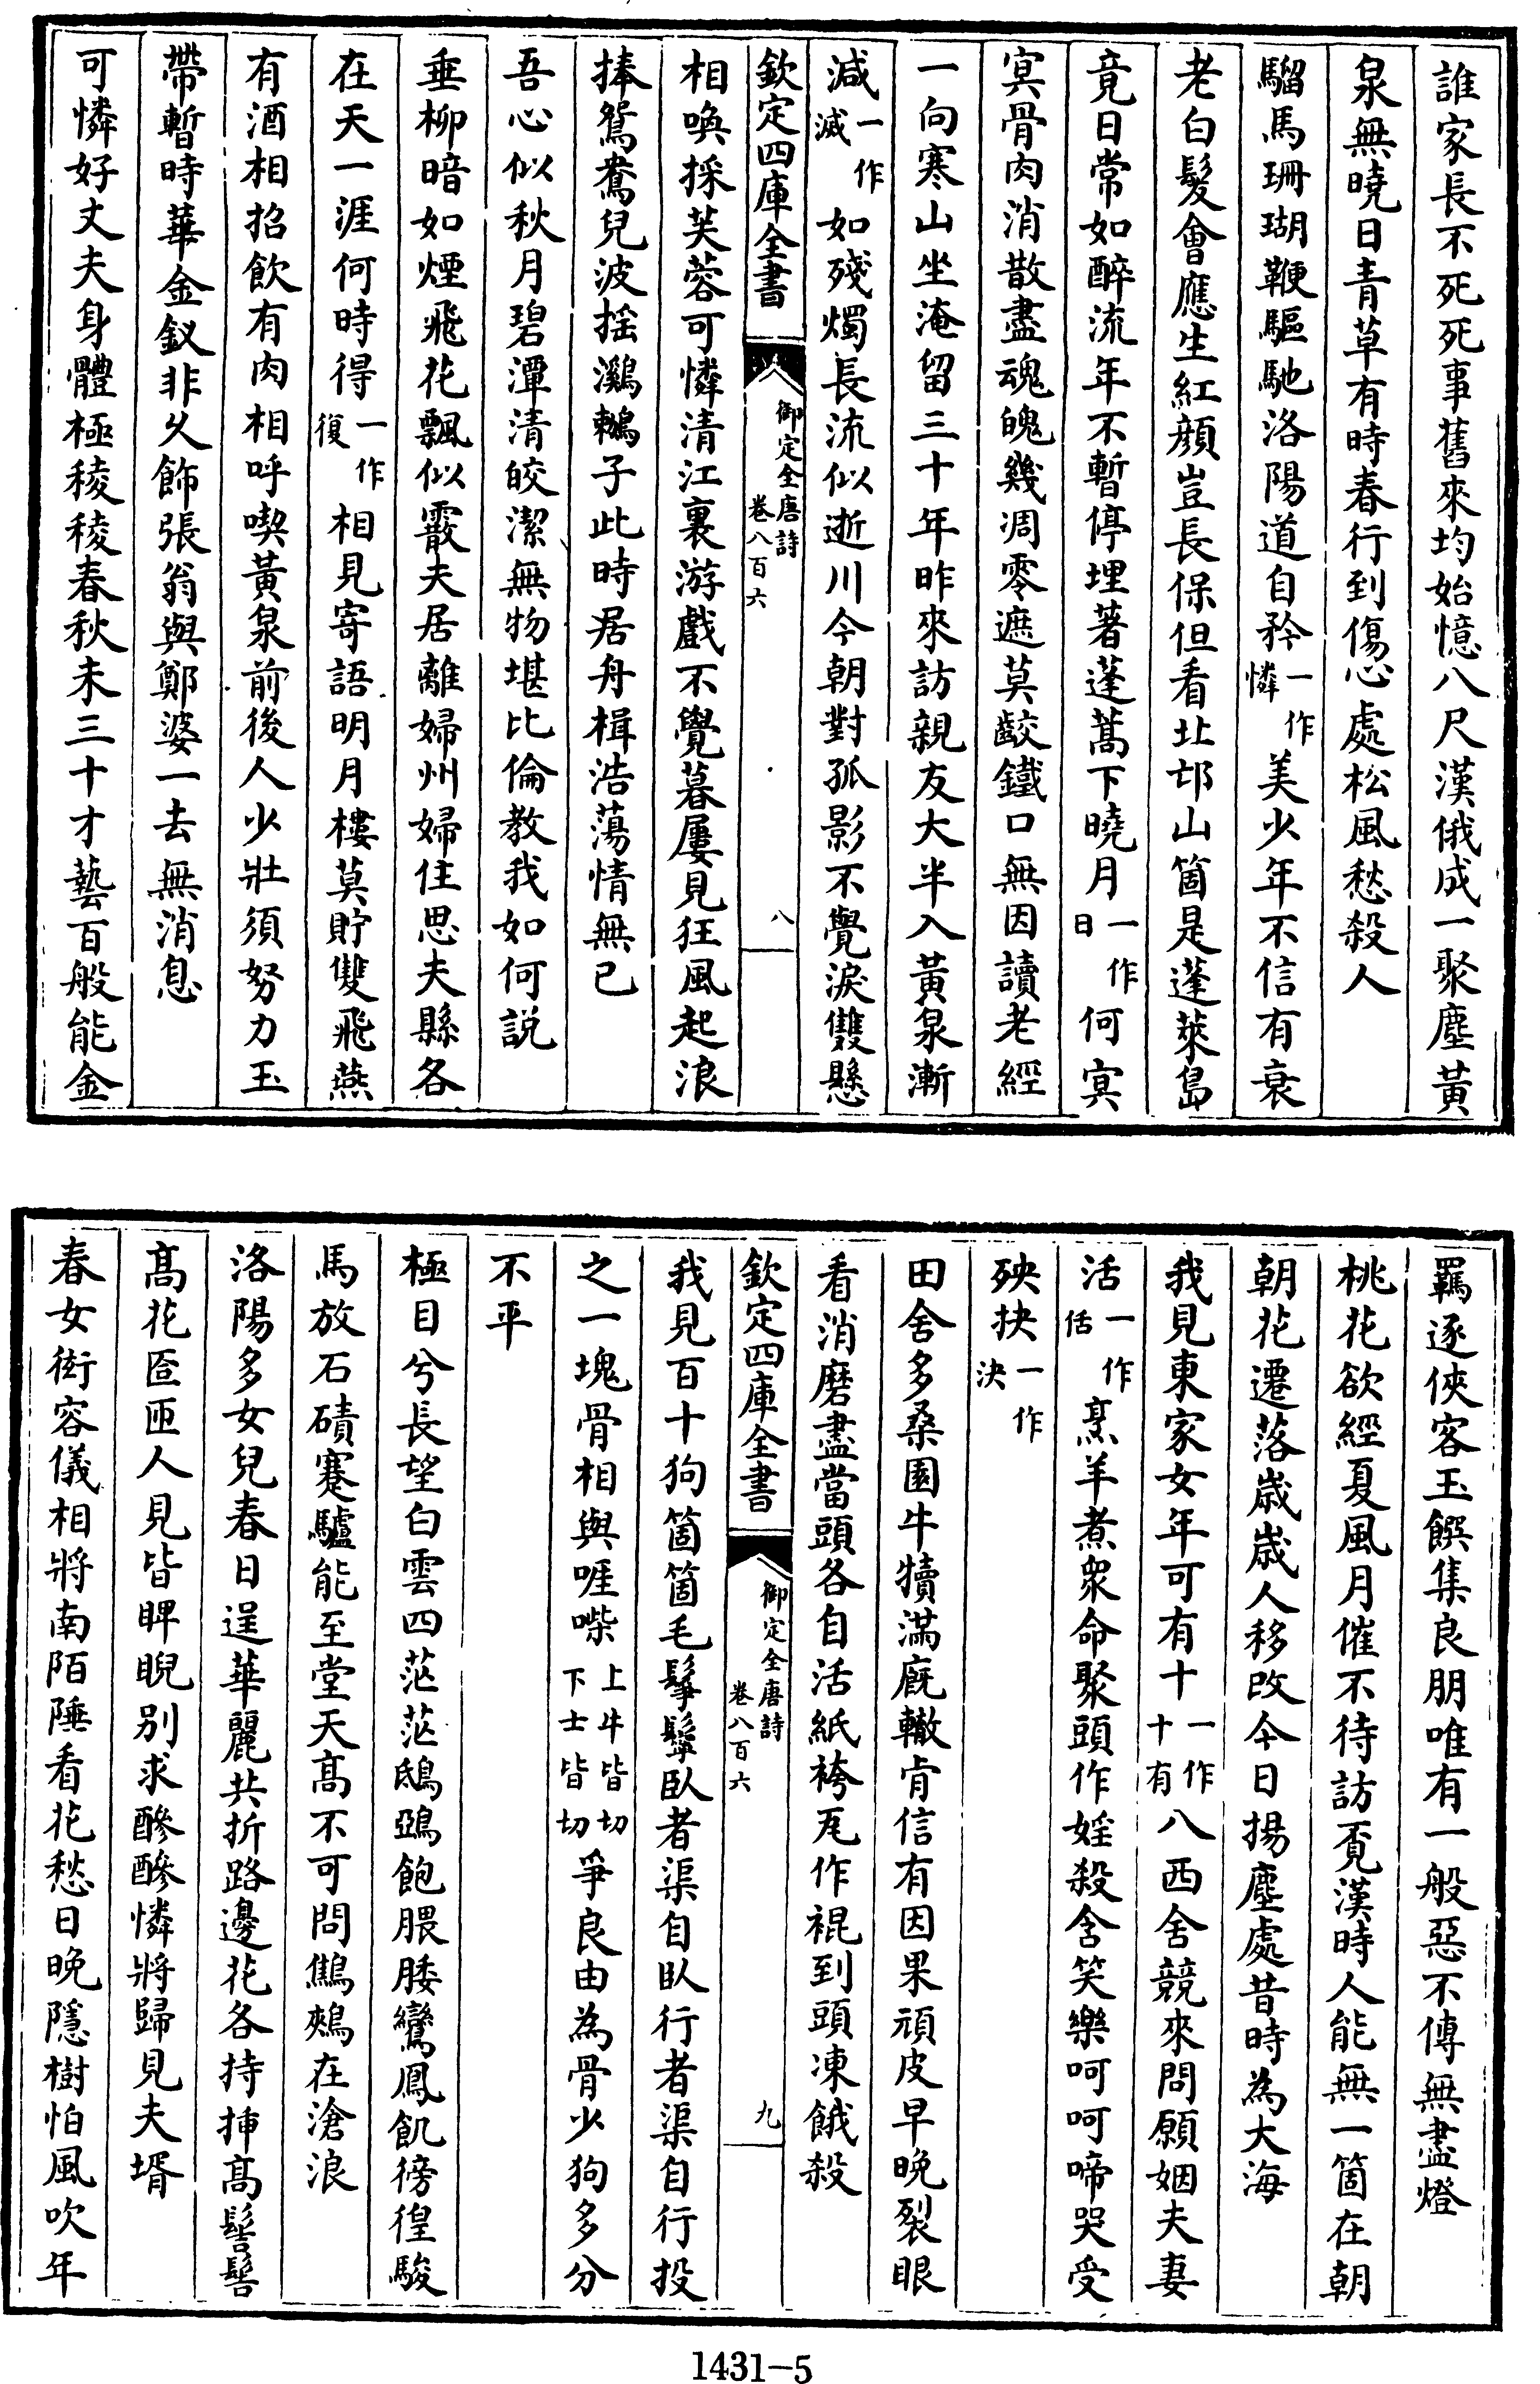 誰家長不死死事舊來均始憶八尺漢俄成一聚塵黃
泉無曉日青草有時春行到傷心處松風愁殺人
騮馬珊瑚鞭驅馳洛陽道自矜一作憐美少年不信有衰
老白髪會應生紅顔豈長保但看北邙山箇是蓬萊島
竟日常如醉流年不暫停埋著蓬蒿下曉月一作日何冥
冥骨肉消散盡魂魄幾凋零遮莫齩鐵口無因讀老經
一向寒山坐淹留三十年昨來訪親友大半入黃泉漸
減一作滅如殘燭長流似逝川今朝對孤影不覺淚雙懸
欽定四庫全書 御定全唐詩 卷八百六 八
相喚採芙蓉可憐清江裏游戲不覺暮屢見狂風起浪
捧鴛鴦兒波揺鸂鶒子此時居舟楫浩蕩情無已
吾心似秋月碧潭清皎潔無物堪比倫教我如何説
垂柳暗如煙飛花飄似霰夫居離婦州婦住思夫縣各
在天一涯何時得一作復相見寄語明月樓莫貯雙飛燕
有酒相招飲有肉相呼喫黃泉前後人少壯須努力玉
帶暫時華金釵非久飾張翁與鄭婆一去無消息
可憐好丈夫身體極稜稜春秋未三十才藝百般能金
羈逐俠客玉饌集良朋唯有一般惡不傳無盡燈
桃花欲經夏風月催不待訪覓漢時人能無一箇在朝
朝花遷落歳歳人移改今日揚塵處昔時為大海
我見東家女年可有十一作十有八西舍競來問願姻夫妻
活一作佸烹羊煮衆命聚頭作婬殺含笑樂呵呵啼哭受
殃抉一作決
田舍多桑園牛犢滿廐轍肯信有因果頑皮早晚裂眼
看消磨盡當頭各自活紙袴瓦作裩到頭凍餓殺
欽定四庫全書 御定全唐詩 卷八百六 九
我見百十狗箇箇毛鬇鬡臥者渠自臥行者渠自行投
之一塊骨相與啀喍上牛皆切下士皆切爭良由為骨少狗多分
不平
極目兮長望白雲四茫茫鴟鵶飽腲腇鸞鳳飢徬徨駿
馬放石磧蹇驢能至堂天髙不可問鷦鶪在滄浪
洛陽多女兒春日逞華麗共折路邊花各持挿髙髻髻
髙花匼匝人見皆睥睨別求醦醦憐將歸見夫壻
春女衒容儀相將南陌陲看花愁日晚隱樹怕風吹年
1431-5